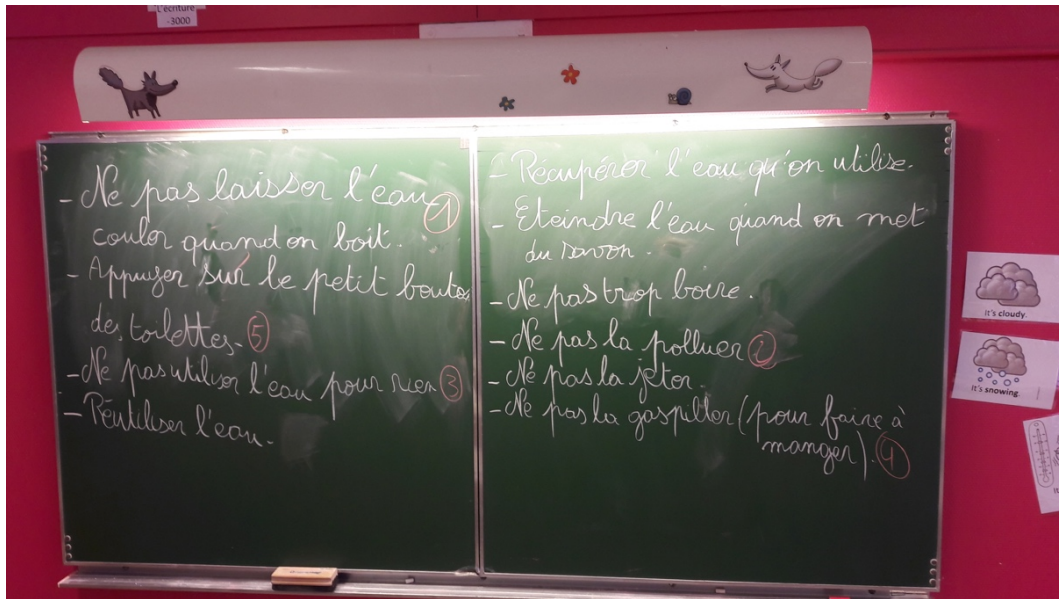 L'écriture
-3000
- Ne pas laisser l'eau
couler quand on boit. 1
- Appuyer sur le petit bouton
des toilettes. 5
- Ne pas utiliser l'eau pour rien 3
- Réutiliser l'eau.
- Récupérer l'eau qu'on utilise.
- Eteindre l'eau quand on met
du savon.
- Ne pas trop boire.
- Ne pas la polluer 2
- Ne pas la jeter.
- Ne pas la gaspiller (pour faire à
manger). 4
It's cloudy.
It's snowing.